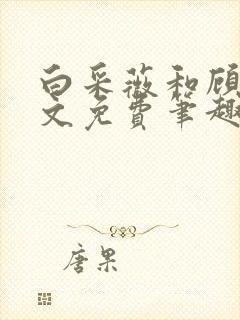 白采薇和顾
文免费笔趣
唐果